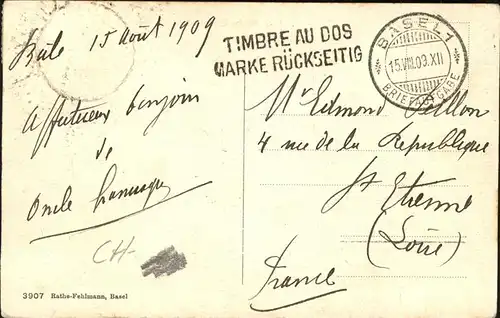 Bale 15 Août 1909
TIMBRE AU DOS
MARKE RÜCKSEITIG
BASEL 1
15.VIII.09.XII
BRIEFAUFGABE
Affectueux bonjour
de
Oncle
Mr Edmond
4 rue de la Republique
St Etienne
(Loire)
France
CH-
3907 Rathe-Fehlmann, Basel